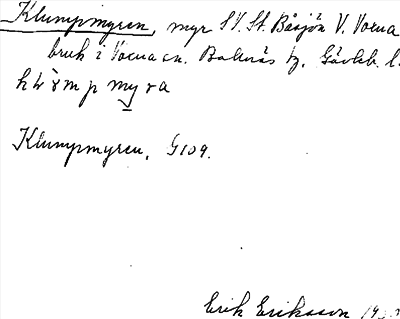 Klumpmyren, myr SV. St. Båsjön V. Voxna
bruk i Voxna sn. Bollnäs tg. Gävleb. l.
Klumpmyren, G109.
Erik Eriksson